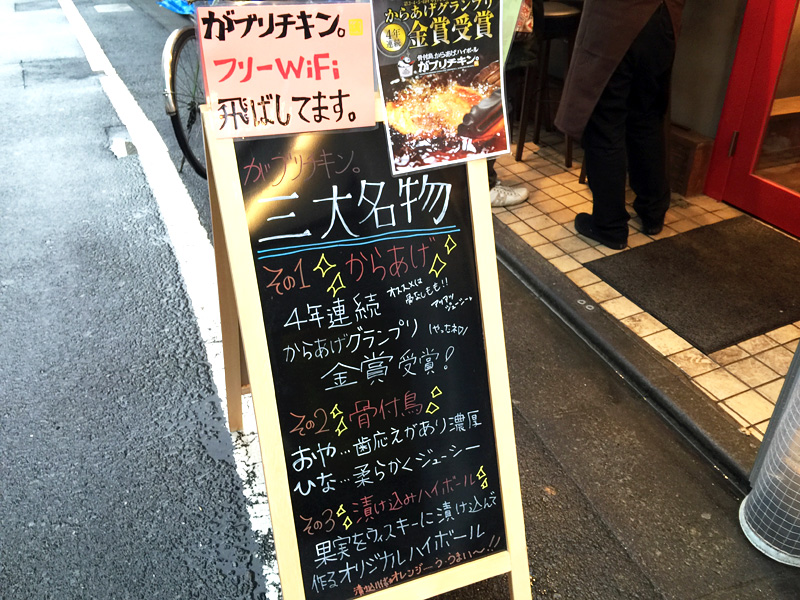 がブリチキン。
フリーWiFi
飛ばしてます。
からあげグランプリ
4年連続
金賞受賞
骨付鳥、からあげ、ハイボール
がブリチキン。
がブリチキン。
三大名物
その1 からあげ
オススメは
骨なしもも!!
アツアツ
ジューシー
4年連続
からあげグランプリ
金賞受賞!
その2 骨付鳥
おや…歯応えがあり濃厚
ひな…柔らかくジューシー
その3 漬け込みハイボール
果実をウィスキーに漬け込んで
作るオリジナルハイボール
オレンジ
う・うまい〜!!